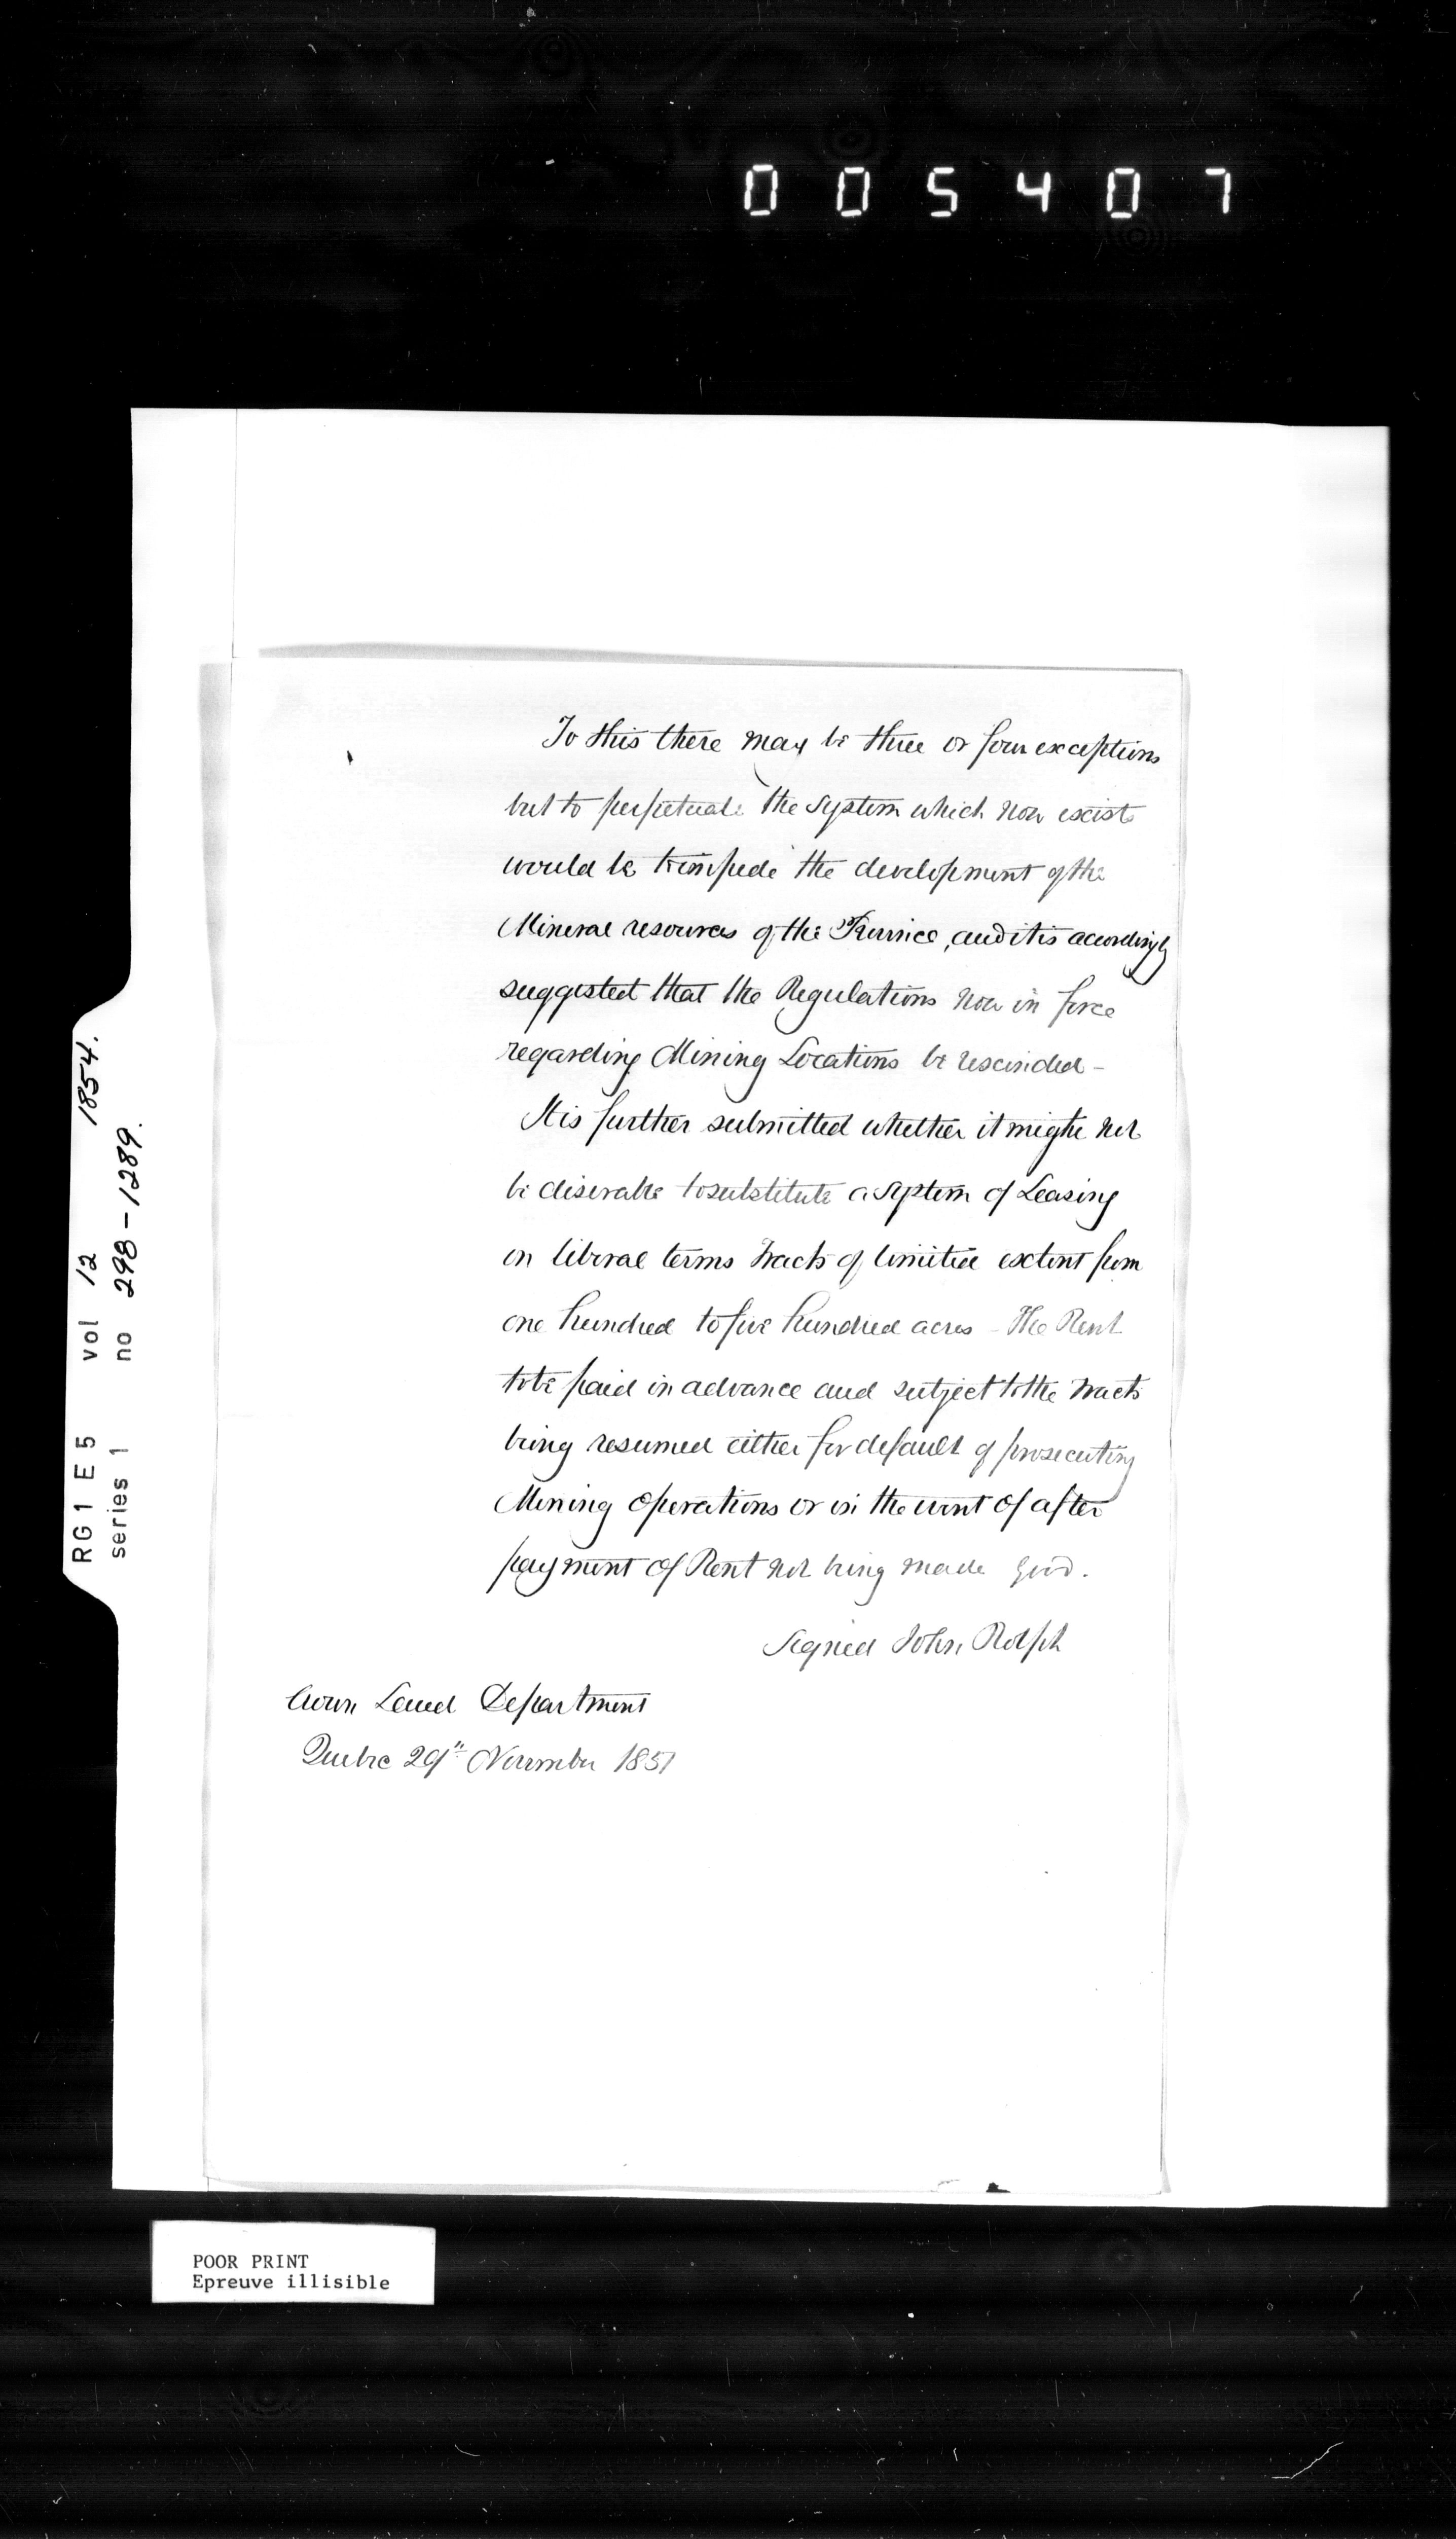 005407
To this there may be three or four exceptions
but to perpetuate the system which now exists
would be to impede the development of the
Mineral resources of the Province, and it is accordingly
suggested that the Regulations now in force
regarding Mining Locations be rescinded -
It is further submitted whether it might not
be disirable to substitute a System of Leasing
on liberal terms tracts of limited extent from
one hundred to five hundred acres - The Rent
to be paid in advance and subject to the tracts
being resumed either for default of prosecuting
Mining Operations or in the event of after
payment of Rent not being made good.
Signed John Rolph
Crown Land Department
Quebec 29th November 1851
RG1 E5 vol 12 1854.
series 1 no 298-1289.
POOR PRINT
Epreuve illisible